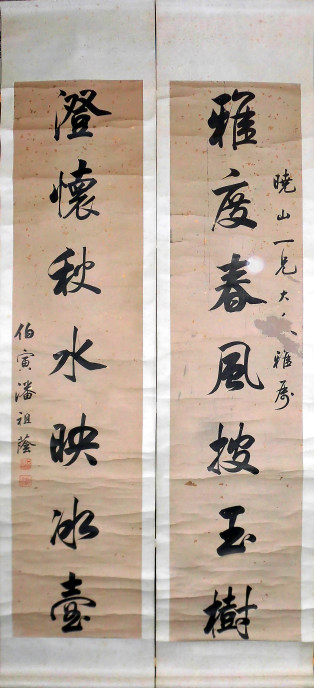 曉山一兄大人雅屬
雅度春風披玉樹
澄懷秋水映冰壺
伯寅潘祖蔭